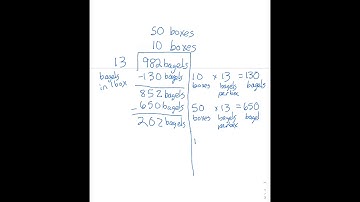 50 boxes
10 boxes
13 982 bagels
bagels in 1 box
-130 bagels 10 x 13 = 130
boxes bagels per box bagels
852 bagels
-650 bagels 50 x 13 = 650
boxes bagels per box bagel
202 bagels